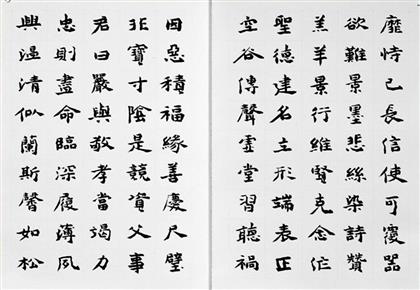 靡恃己長信使可覆器
欲難量墨悲絲染詩讚
羔羊景行維賢克念作
聖德建名立形端表正
空谷傳聲虛堂習聽禍
因惡積福緣善慶尺璧
非寶寸陰是競資父事
君曰嚴與敬孝當竭力
忠則盡命臨深履薄夙
興溫清似蘭斯馨如松